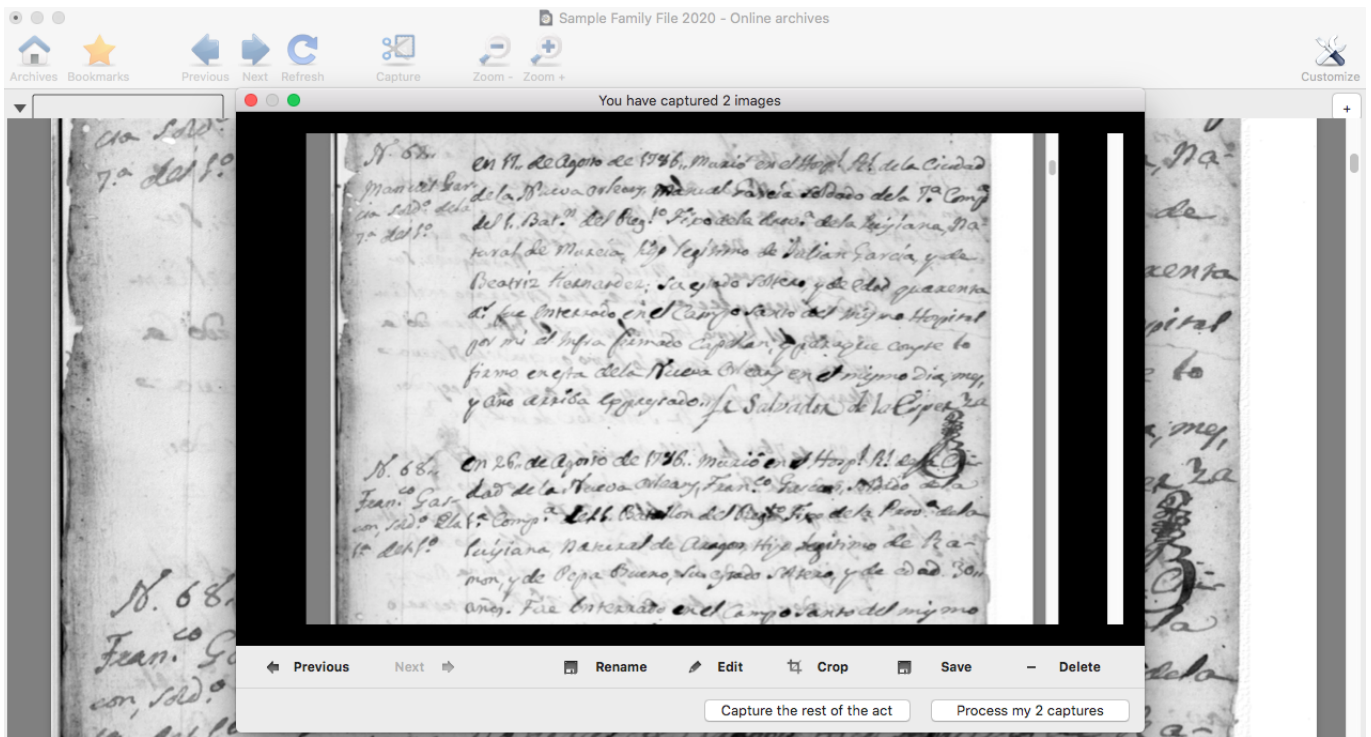 Sample Family File 2020 - Online archives
Archives Bookmarks Previous Next Refresh Capture Zoom - Zoom + Customize
You have captured 2 images
N. 67.
Manuel Gar-
cia Sold.º dela
7.ª del 1.º
en 17. de Agosto de 1786. Murió en el Hosp.l R.l dela Ciudad
dela Nueva Orleans, Manuel Garcia Soldado dela 7.ª Comp.ª
del 1. Bat.n del Reg.to Fixo dela dela Luisiana, Na-
tural de Murcia, hijo legitimo de Julian Garcia, y de
Beatriz Hernandez; su estado soltero, y de edad quarenta
a.s fue enterrado en el Campo Santo del mismo Hospital
por mi el Infra firmado Capellan, y paraque conste lo
firmo en esta dela Nueva Orleans en el mismo dia, mes,
y año arriba expresado. Salvador de la
N. 68.
Fran.co Gas-
con, Sold.º
1.ª del 1.º
en 26. de Agosto de 1786. Murió en el Hosp.l R.l dela Ci-
dad dela Nueva Orleans, Fran.co Gascon, Soldado dela
1.ª Comp.ª del 1. Batallon del Reg.to Fixo dela Prov.ª dela
Luisiana, Natural de Aragon, Hijo legitimo de Ra-
mon, y de Pepa Bueno, su estado soltero, y de edad 30..
años. Fue enterrado en el Campo Santo del mismo
Previous Next Rename Edit Crop Save Delete
Capture the rest of the act Process my 2 captures
cia Sold.º
7.ª del 1.º
N. 68.
Fran.co
con, Sold.º
Na-
de
pital
lo
mes,
dela